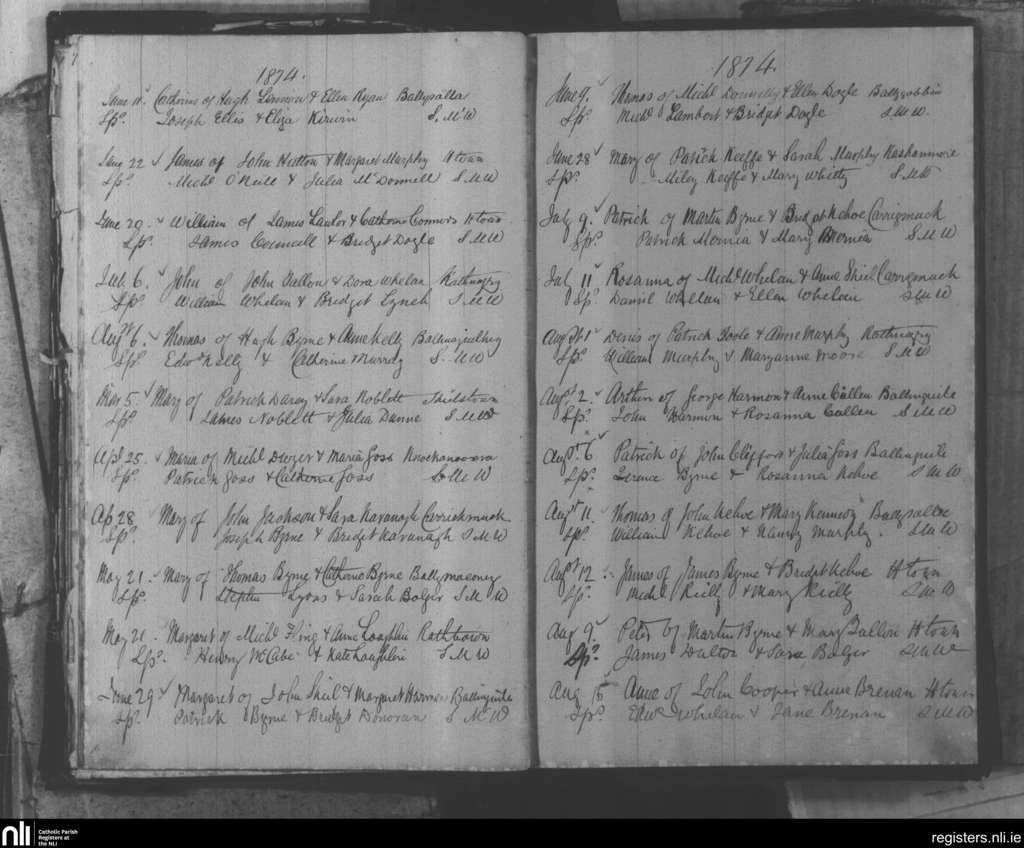 1874.
June 11 Catherine of Hugh & Ellen Ryan Ballysalla
Sps. Joseph Ellis & Eliza Kirwin S. McW
June 22 James of John Hutton & Margaret Murphy Htown
Sps. Michl O'Neill & Julia McDonnell S M W
June 29 William of James Lawlor & Catherine Connors Htown
Sps. James Connell & Bridget Dogle S M W
July 6. John of John & Dora Whelan
Sps. William Whelan & Bridget Lynch S M W
Augt 6. Thomas of Hugh Byrne & Anne Kelly
Sps. Edwd Kelly & Catherine Murray S. M W
Mar 5. Mary of Patrick Darcy & Sara Noblett
Sps. James Noblett & Julia Dunne S M W
Apl 25. Maria of Michl Dwyer & Maria Goss
Sps. Patrick Goss & Catherine Goss S M W
Ap 28 Mary of John Jackson & Sara Kavanagh Carrickmuck
Sps. Joseph Byrne & Bridget Kavanagh S M W
May 21. Mary of Thomas Byrne & Catherine Byrne Ballymoconey
Sps. Stephen Lyons & Sarah Bolger S M W
May 21. Margaret of Michl & Anne Loughlin Rathbawn
Sps. Henry McCabe & Kate Loughlin S M W
June 29 Margaret of John Shiel & Margaret Harmon Ballinguile
Sps. Patrick Byrne & Bridget Donovan S McW
1874.
June 9. Thomas of Michl Donnelly & Ellen Dogle
Sps. Michl Lambert & Bridget Dogle S M W.
June 28 Mary of Patrick Keeffe & Sarah Murphy
Sps. Miley Keeffe & Mary Whitty S M W
July 9. Patrick of Martin Byrne & Bridget Kehoe Carrigmuck
Sps. Patrick Mernia & Mary Mernia S M W
July 11 Rosanna of Michl Whelan & Anne Shiel Carrigmuck
Sps. Daniel Whelan & Ellen Whelan S M W
Augst 1 Denis of Patrick Toole & Anne Murphy
Sps. William Murphy & Maryanne Moore S M W
Augt 2. Arthur of George Harmon & Anne Cullen Ballinguile
Sps. John Harmon & Rosanna Cullen S M W
Augst. 6 Patrick of John Clifford & Julia Goss Ballinguile
Sps. Terence Byrne & Rosanna Kehoe S M W
Augt 11. Thomas of John Kehoe & Mary Kennedy
Sps. William Kehoe & Nancy Murphy. S M W
Augt 12 James of James Byrne & Bridget Kehoe Htown
Sps. Michl Reilly & Mary Reilly S M W
Aug 9. Peter of Martin Byrne & Mary Htown
Sps. James Dalton & Sara Bolger S M W
Aug 15 Anne of John Cooper & Anne Brenan Htown
Sps. Edwd Whelan & Jane Brenan S M W
nli
Catholic Parish
Registers at
the NLI
registers.nli.ie